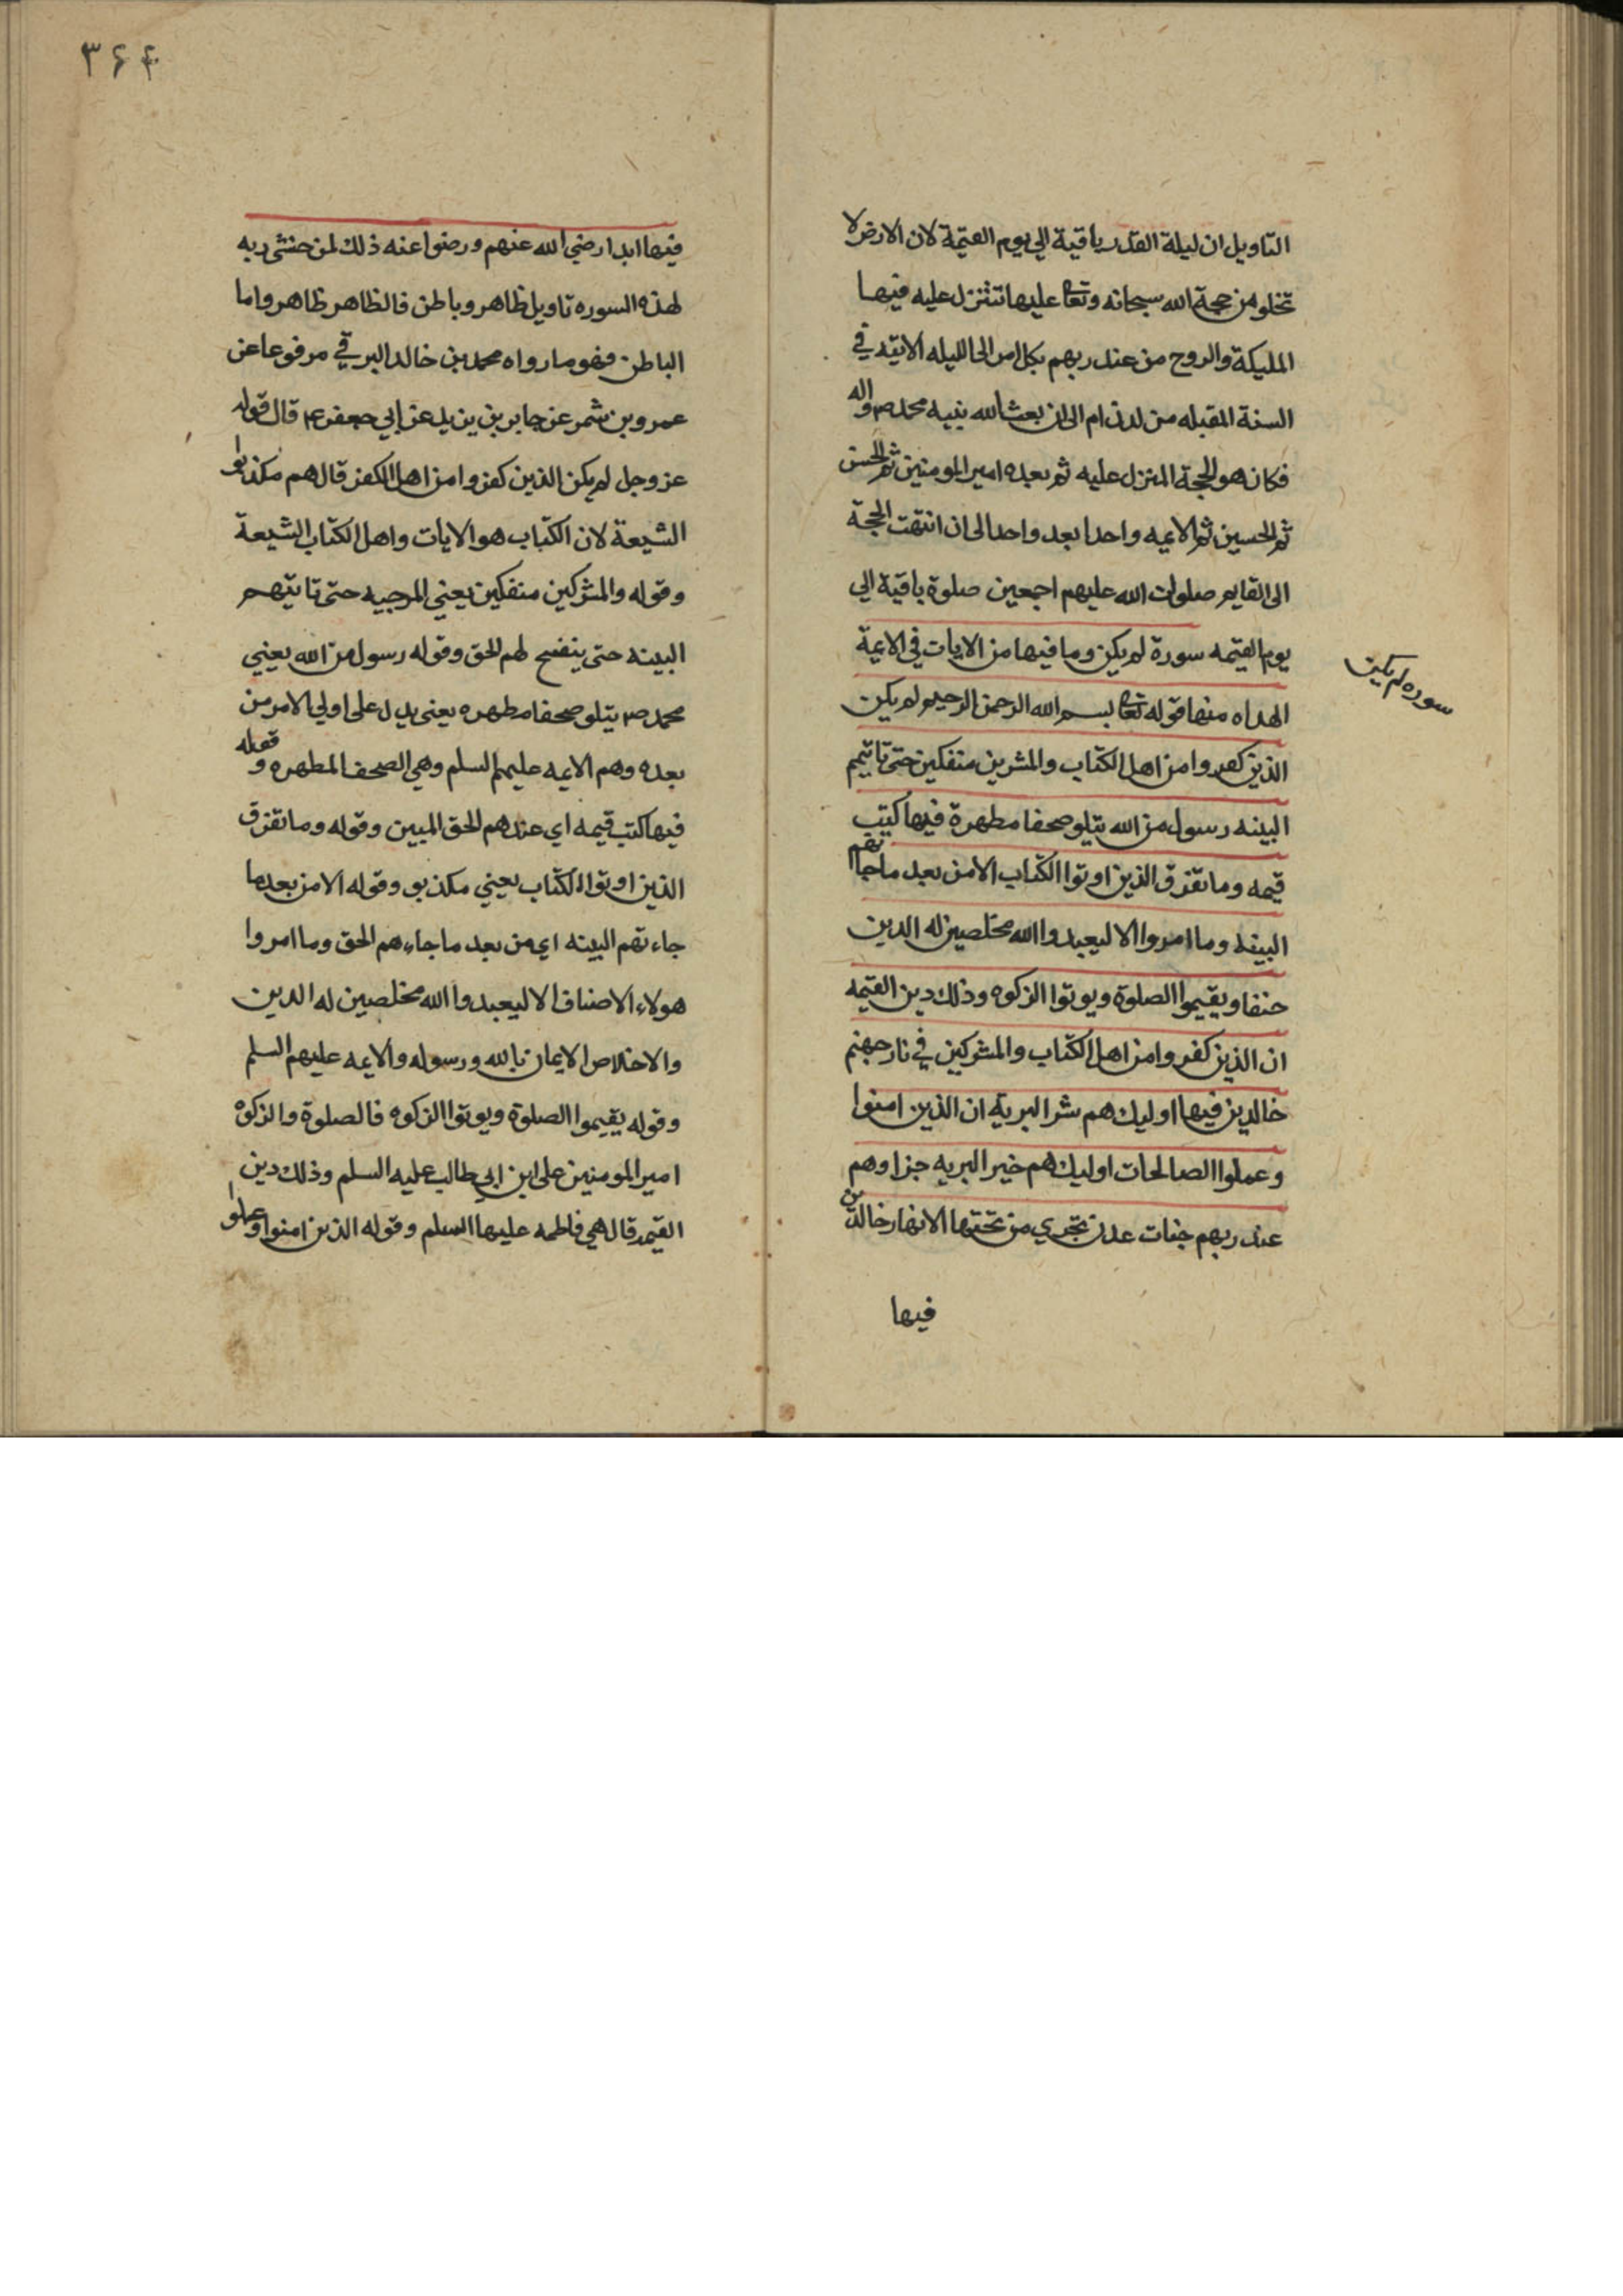 التاويل ان ليلة القدر باقية الي يوم القيمة لان الارض لا
تخلو من حجة الله سبحانه وتعا عليها تتنزل عليه فيها
المليكة والروح من عند ربهم بكل امر الى الليله الاتيه في
السنة المقبله من لدن ادم الى ان بعث الله نبيه محمد ص واله
فكان هو الحجة المنزل عليه ثم بعده امير المومنين ثم الحسن
ثم الحسين ثم الايمه واحدا بعد واحد الى ان انتهت الحجة
الى القايم صلوات الله عليهم اجمعين صلوة باقية الي
يوم القيمه سورة لم يكن وما فيها من الايات في الايمة
سوره لم يكن
الهداه منها قوله تعا بسم الله الرحمن الرحيم لم يكن
الذين كفروا من اهل الكتاب والمشرين منفكين حتى تاتيهم
البينه رسول من الله يتلو صحفا مطهرة فيها كتب
قيمه وما تفرق الذين اوتوا الكتاب الا من بعد ما جااتهم
البينه وما امروا الا ليعبدوا الله مخلصين له الدين
حنفا ويقيموا الصلوة ويوتوا الزكوه وذلك دين القيمه
ان الذين كفروا من اهل الكتاب والمشركين في نار جهنم
خالدين فيها اوليك هم شر البرية ان الذين امنوا
وعملوا الصالحات اوليك هم خير البريه جزاوهم
عند ربهم جنات عدن تجري من تحتها الانهار خالدين
فيها
٣۶۴
فيها ابدا رضي الله عنهم ورضوا عنه ذلك لمن خشي ربه
لهذه السوره تاويل ظاهر وباطن فالظاهر ظاهر واما
الباطن فهو ما رواه محمد بن خالد البرقي مرفوعا عن
عمرو بن شمر عن جابر بن يزيد عن ابي جعفر ع قال قوله
عز وجل لم يكن الذين كفروا من اهل الكفر قال هم مكذبوا
الشيعة لان الكتاب هو الايات واهل الكتاب الشيعة
وقوله والمشركين منفكين يعني المرجيه حتى تاتيهم
البينه حتى يتضح لهم الحق وقوله رسول من الله يعني
محمد ص يتلو صحفا مطهره يعني يدل على اولي الامر من
بعده وهم الايمه عليهم السلم وهي الصحف المطهره وقوله
فيها كتب قيمه اي عندهم الحق المبين وقوله وما تفرق
الذين اوتوا الكتاب يعني مكذبو وقوله الا من بعد ما
جاءتهم البينه اي من بعد ما جاءهم الحق وما امروا
هولاء الاصناف الا ليعبدوا الله مخلصين له الدين
والاخلاص الايمان بالله ورسوله والايمه عليهم السلم
وقوله يقيموا الصلوة ويوتوا الزكوه فالصلوة والزكوة
امير المومنين على ابن ابي طالب عليه السلم وذلك دين
القيمه قال هي فاطمه عليها السلم وقوله الذين امنوا وعملوا